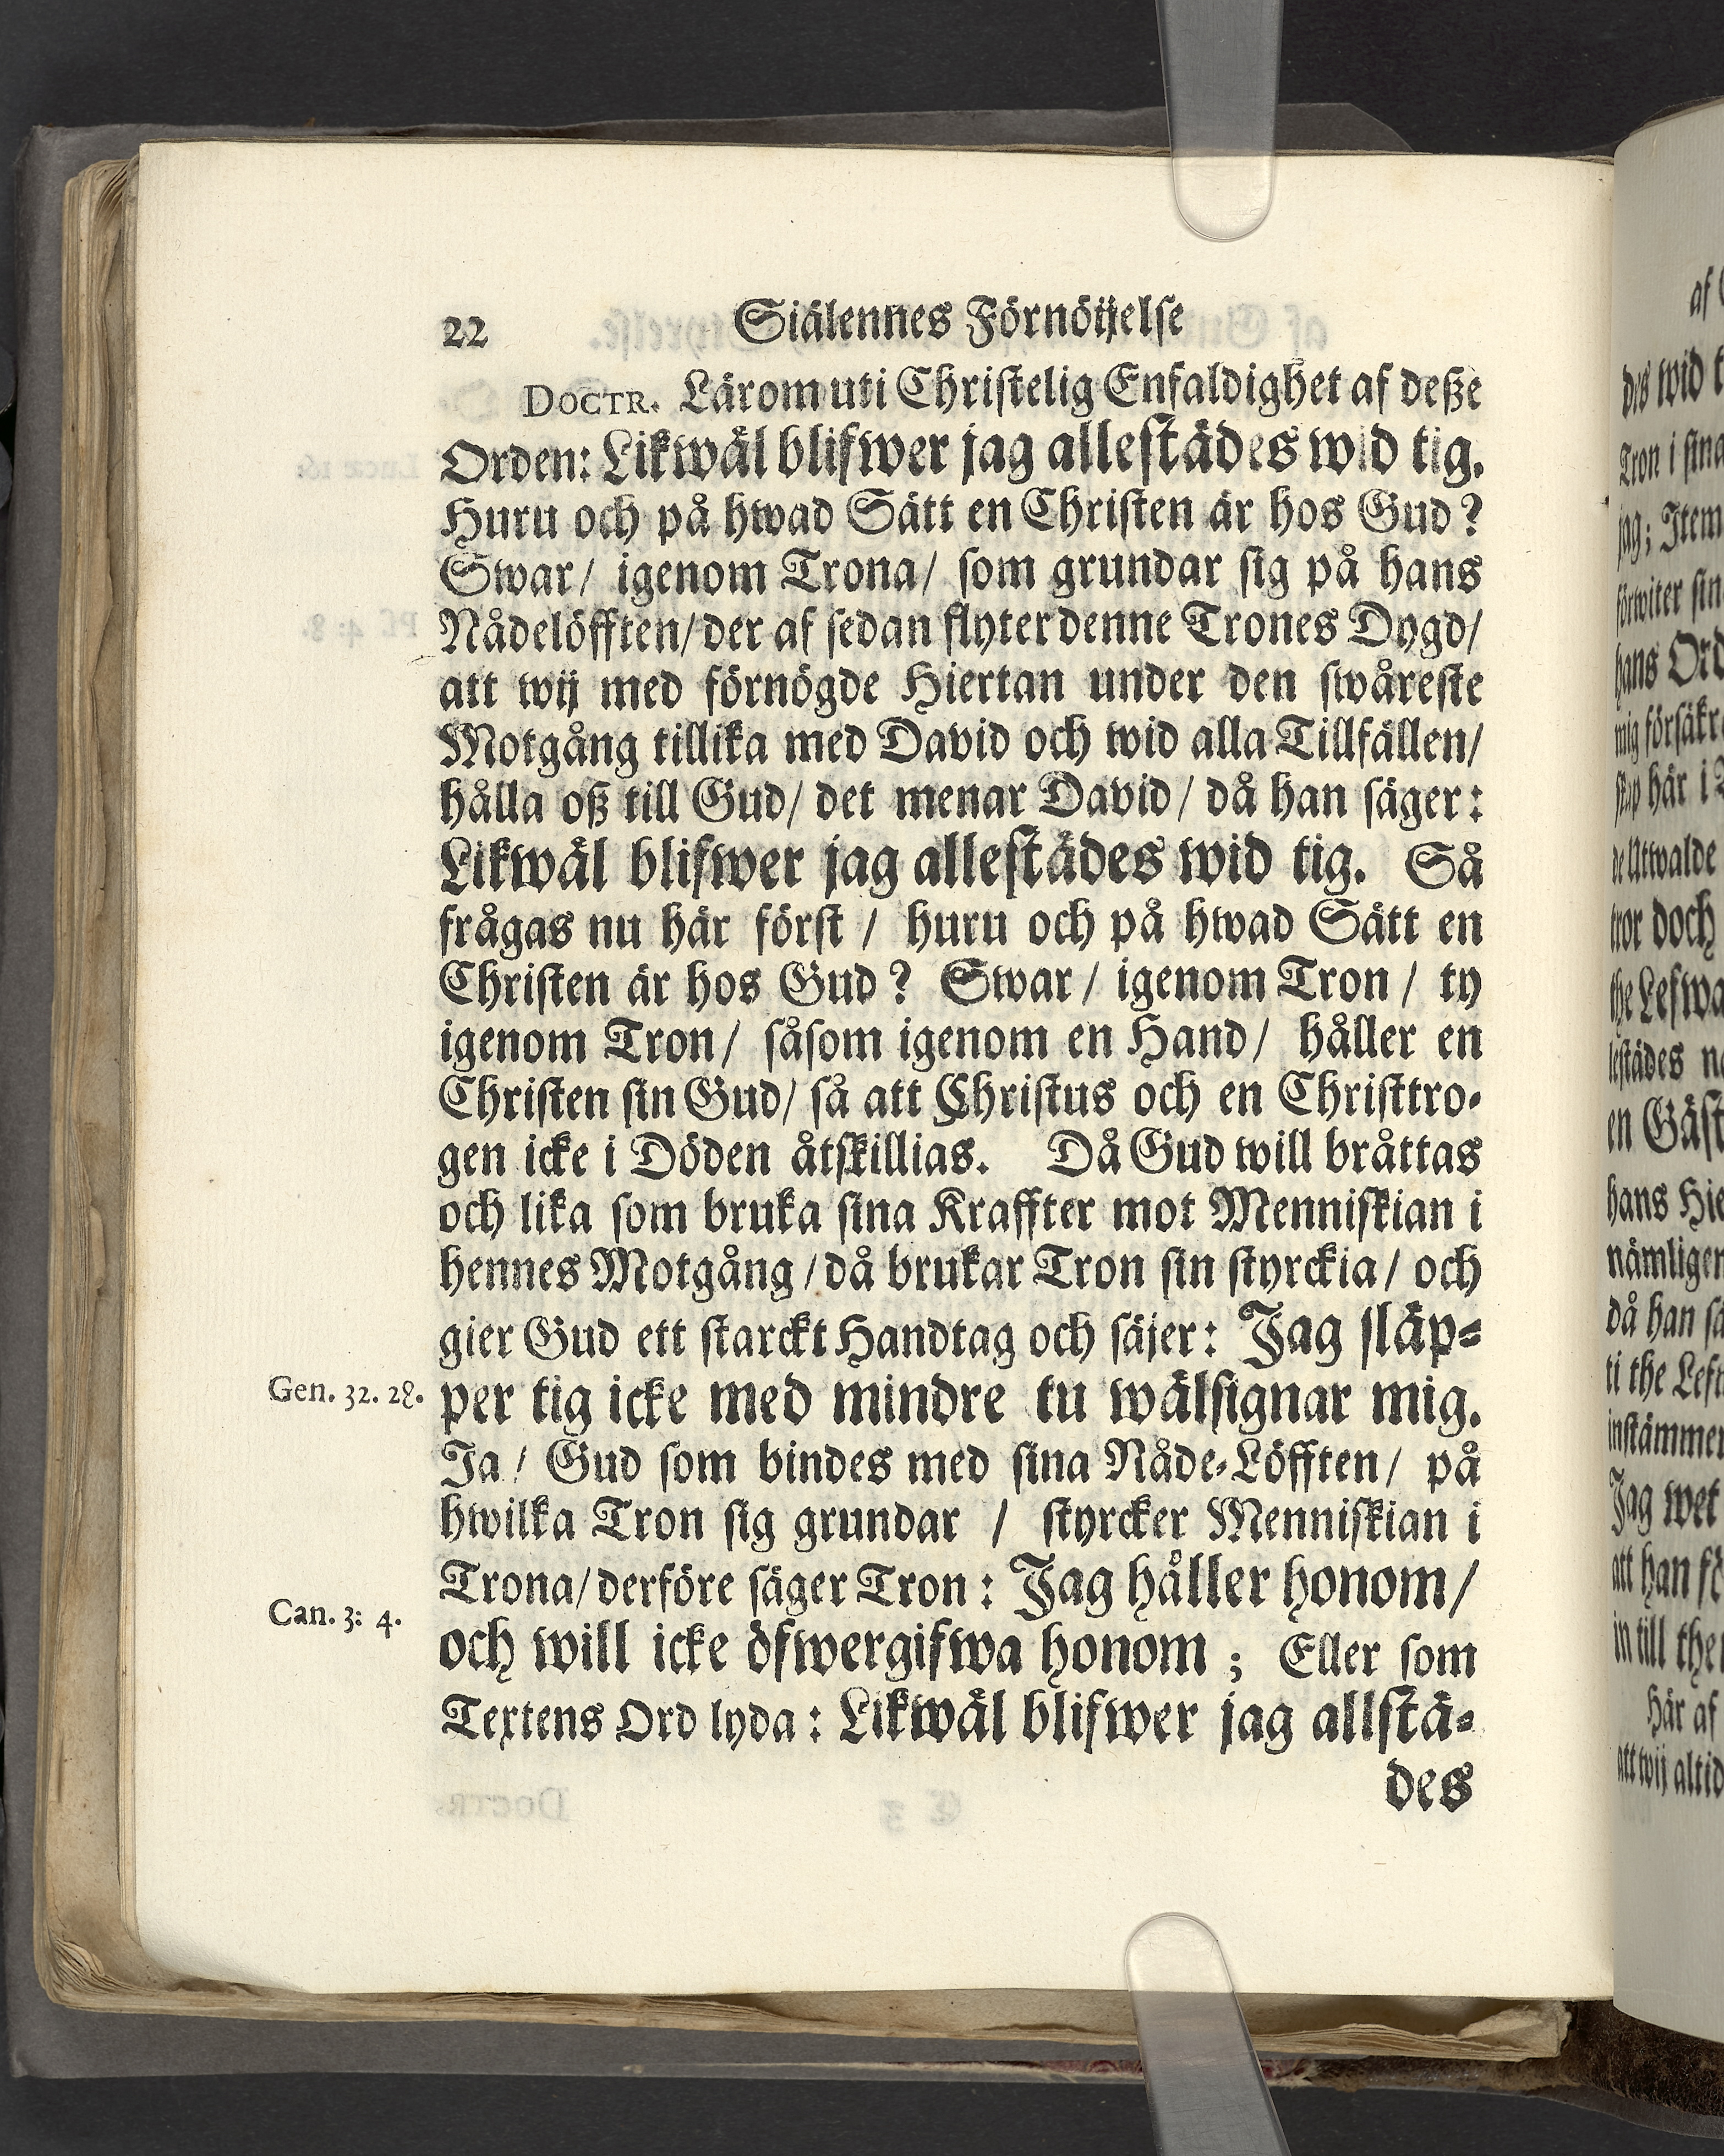 22 Siälennes Förnöijelse
DOCTR. Lärom uti Christelig Enfaldighet af deße
Orden: Likwäl blifwer jag allestädes wid tig.
Huru och på hwad Sätt en Christen är hos Gud?
Swar/ igenom Trona/ som grundar sig på hans
Nådelöfften/ der af sedan flyter denne Trones Dygd/
att wij med förnögde Hiertan under den swåreste
Motgång tillika med David och wid alla Tillfällen/
hålla oß till Gud/ det menar David/ då han säger:
Likwäl blifwer jag allestädes wid tig. Så
frågas nu här först / huru och på hwad Sätt en
Christen är hos Gud? Swar/ igenom Tron/ ty
igenom Tron/ såsom igenom en Hand/ håller en
Christen sin Gud/ så att Christus och en Christtro-
gen icke i Döden åtskillias. Då Gud will bråttas
och lika som bruka sina Kraffter mot Menniskian i
hennes Motgång/ då brukar Tron sin styrckia/ och
gier Gud ett starckt Handtag och säjer: Jag släp-
Gen. 32. 28. per tig icke med mindre tu wälsignar mig.
Ja/ Gud som bindes med sina Nåde-Löfften/ på
hwilka Tron sig grundar / styrcker Menniskian i
Trona/ derföre säger Tron: Jag håller honom/
Can. 3: 4. och will icke öfwergifwa honom; Eller som
Textens Ord lyda: Likwäl blifwer jag allstä-
des
af
des wid t
Tron i sina
jag; Item
förwiter sin
hans Ord
mig försäkr
skap här i
de Utwalde
tror doch
the Lefwa
lestädes n
en Gäst
hans Hie
nämligen
då han sä
ti the Lef
instämmer
Jag wet
att han fö
in till the
Här af
att wij altid